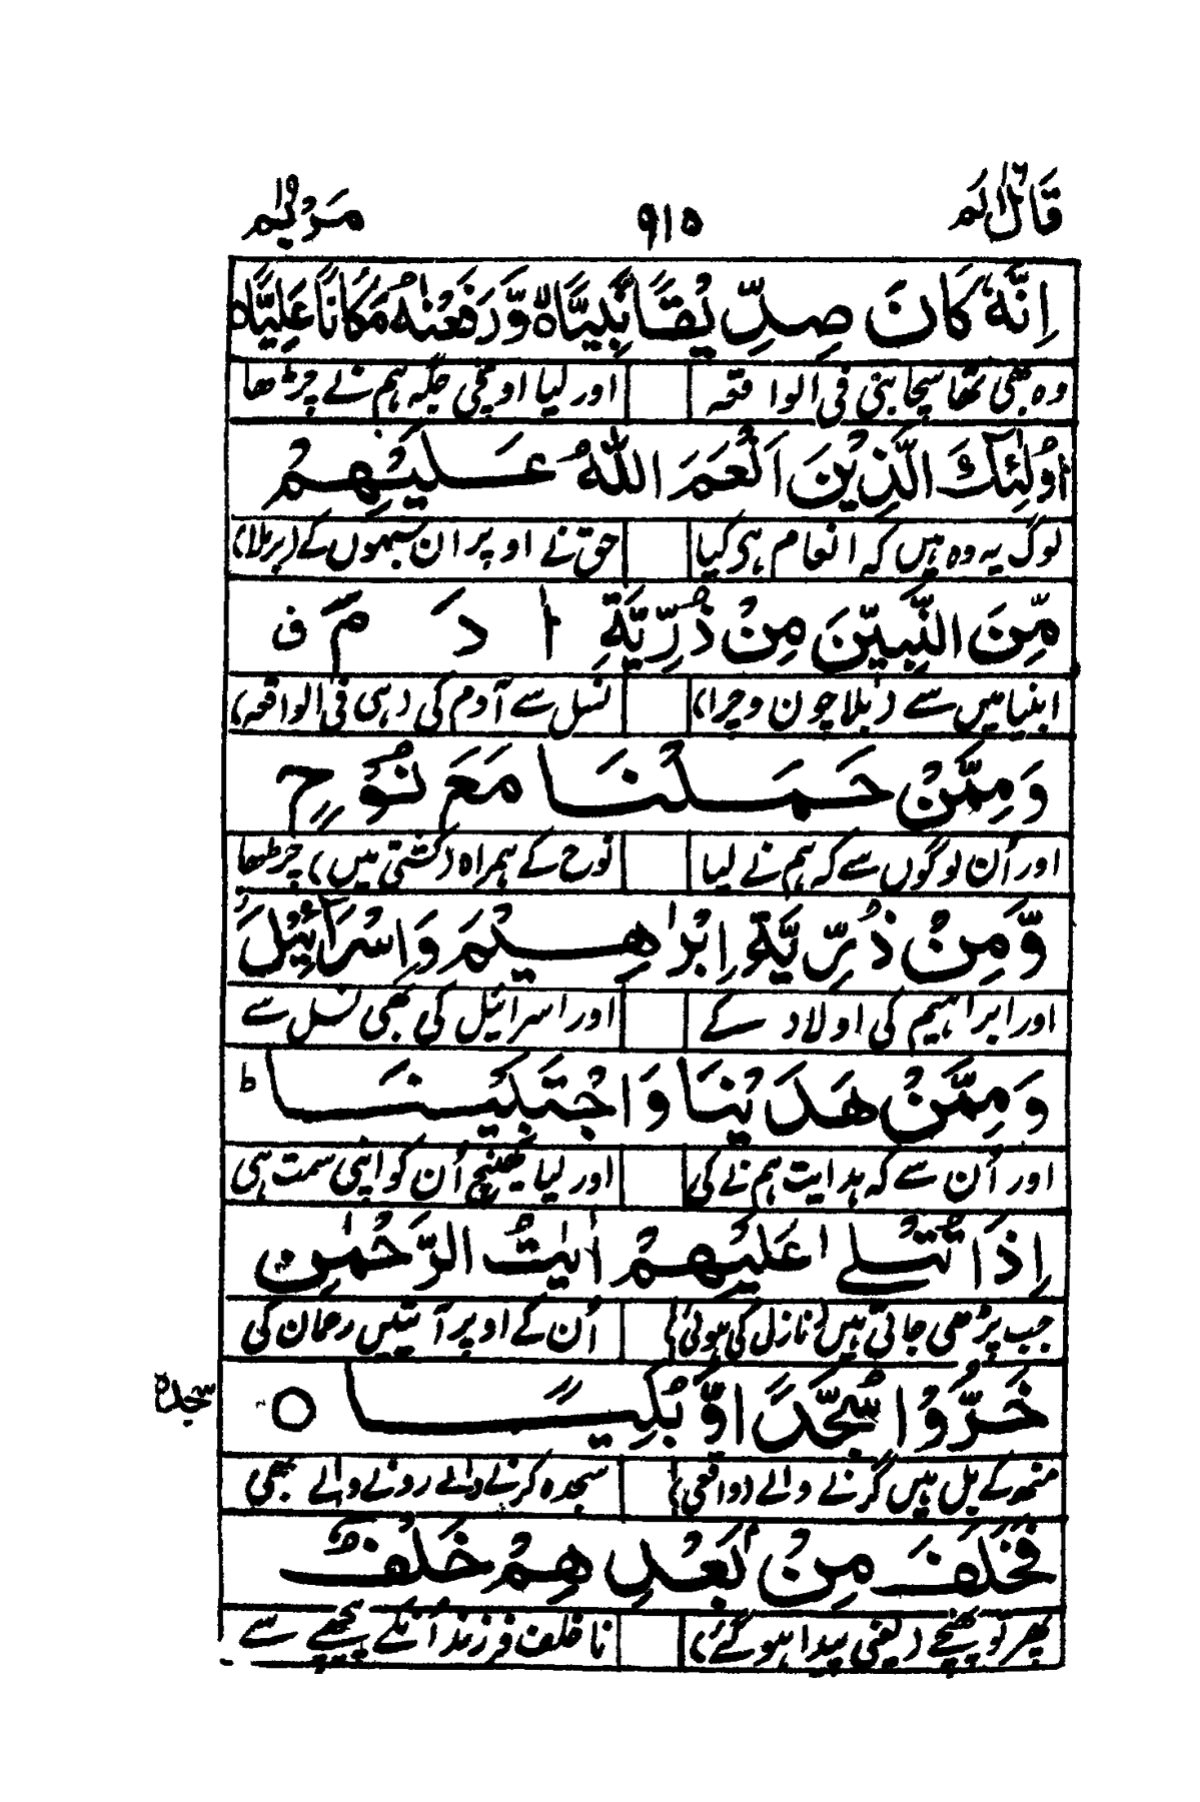 قَالَ اَلَمْ ۱۶ ۹۱۵ مَرْيَم ۱۹
اِنَّهٗ كَانَ صِدِّيْقًا نَّبِيًّا ۝ وَّرَفَعْنٰهُ مَكَانًا عَلِيًّا ۝
وہ بھی تھا سچا نبی فی الواقعہ اور لیا اونچی جگہ ہم نے چڑھا
اُولٰٓئِكَ الَّذِيْنَ اَنْعَمَ اللّٰهُ عَلَيْهِمْ
لوگ یہ وہ ہیں کہ انعام ہی کیا حق نے اوپر ان سبھوں کے (برملا)
مِّنَ النَّبِيّٖنَ مِنْ ذُرِّيَّةِ اٰدَمَ ق
انبیا میں سے (بلا چون و چرا) نسل سے آدم کی (ہی فی الواقعہ)
وَمِمَّنْ حَمَلْنَا مَعَ نُوْحٍ
اور اُن لوگوں سے کہ ہم نے لیا نوح کے ہمراہ (کشتی میں) چڑھا
وَّمِنْ ذُرِّيَّةِ اِبْرٰهِيْمَ وَاِسْرَآئِيْلَ
اور ابراہیم کی اولاد کے اور اسرائیل کی بھی نسل سے
وَمِمَّنْ هَدَيْنَا وَاجْتَبَيْنَا ط
اور اُن سے کہ ہدایت ہم نے کی اور لیا کھینچ اُن کو اپنی سمت ہی
اِذَا تُتْلٰى عَلَيْهِمْ اٰيٰتُ الرَّحْمٰنِ
جب پڑھی جاتی ہیں (نازل کی ہوئی) اُن کے اوپر آیتیں رحمان کی
خَرُّوْا سُجَّدًا وَّبُكِيًّا ۝ سجدہ
منہ کے بل ہیں گرنے والے (واقعی) سجدہ کرنے والے رونے والے بھی
فَخَلَفَ مِنْۢ بَعْدِهِمْ خَلْفٌ
پھر تو پہنچے (یعنی پیدا ہو گئے) ناخلف فرزند اُنکے پیچھے سے